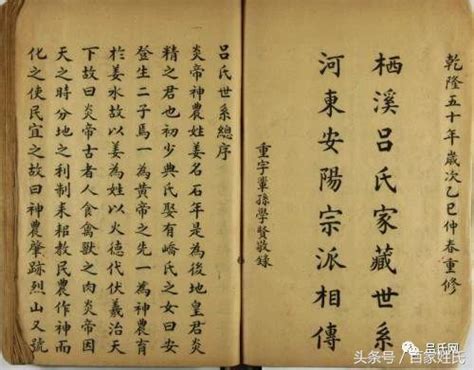 乾隆五十年歲次乙巳仲春重修
栖溪呂氏家藏世系
河東安陽宗派相傳
重字輩孫學賢敬錄
呂氏世系總序
炎帝神農姓姜名石年是為後地皇君炎
精之君也初少典氏娶有嶠氏之女曰安
登生二子焉一為黃帝之先一為神農育
於姜水故以姜為姓以火德代伏羲治天
下故曰炎帝古者人食禽獸之肉炎帝因
天之時分地之利制耒耜教民農作神而
化之使民宜之故曰神農肇跡烈山又號
吕氏网
头条号 / 百家姓氏